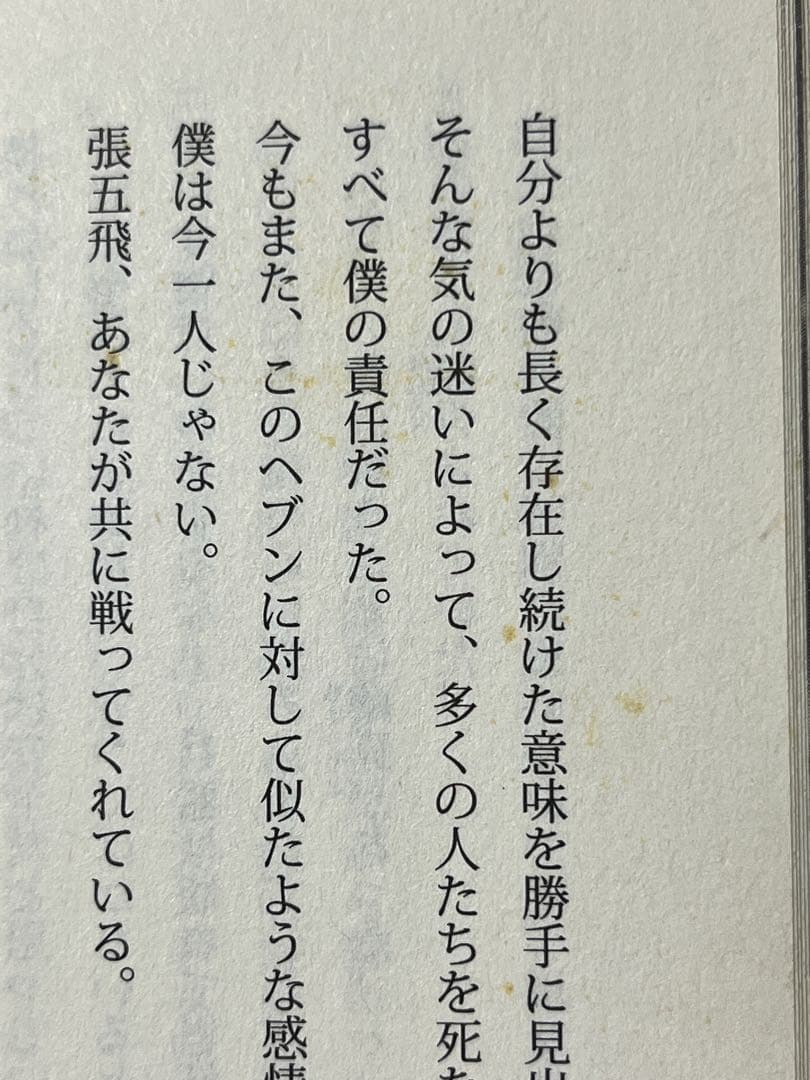 自分よりも長く存在し続けた意味を勝手に見出
そんな気の迷いによって、多くの人たちを死な
すべて僕の責任だった。
今もまた、このヘブンに対して似たような感情
僕は今一人じゃない。
張五飛、あなたが共に戦ってくれている。